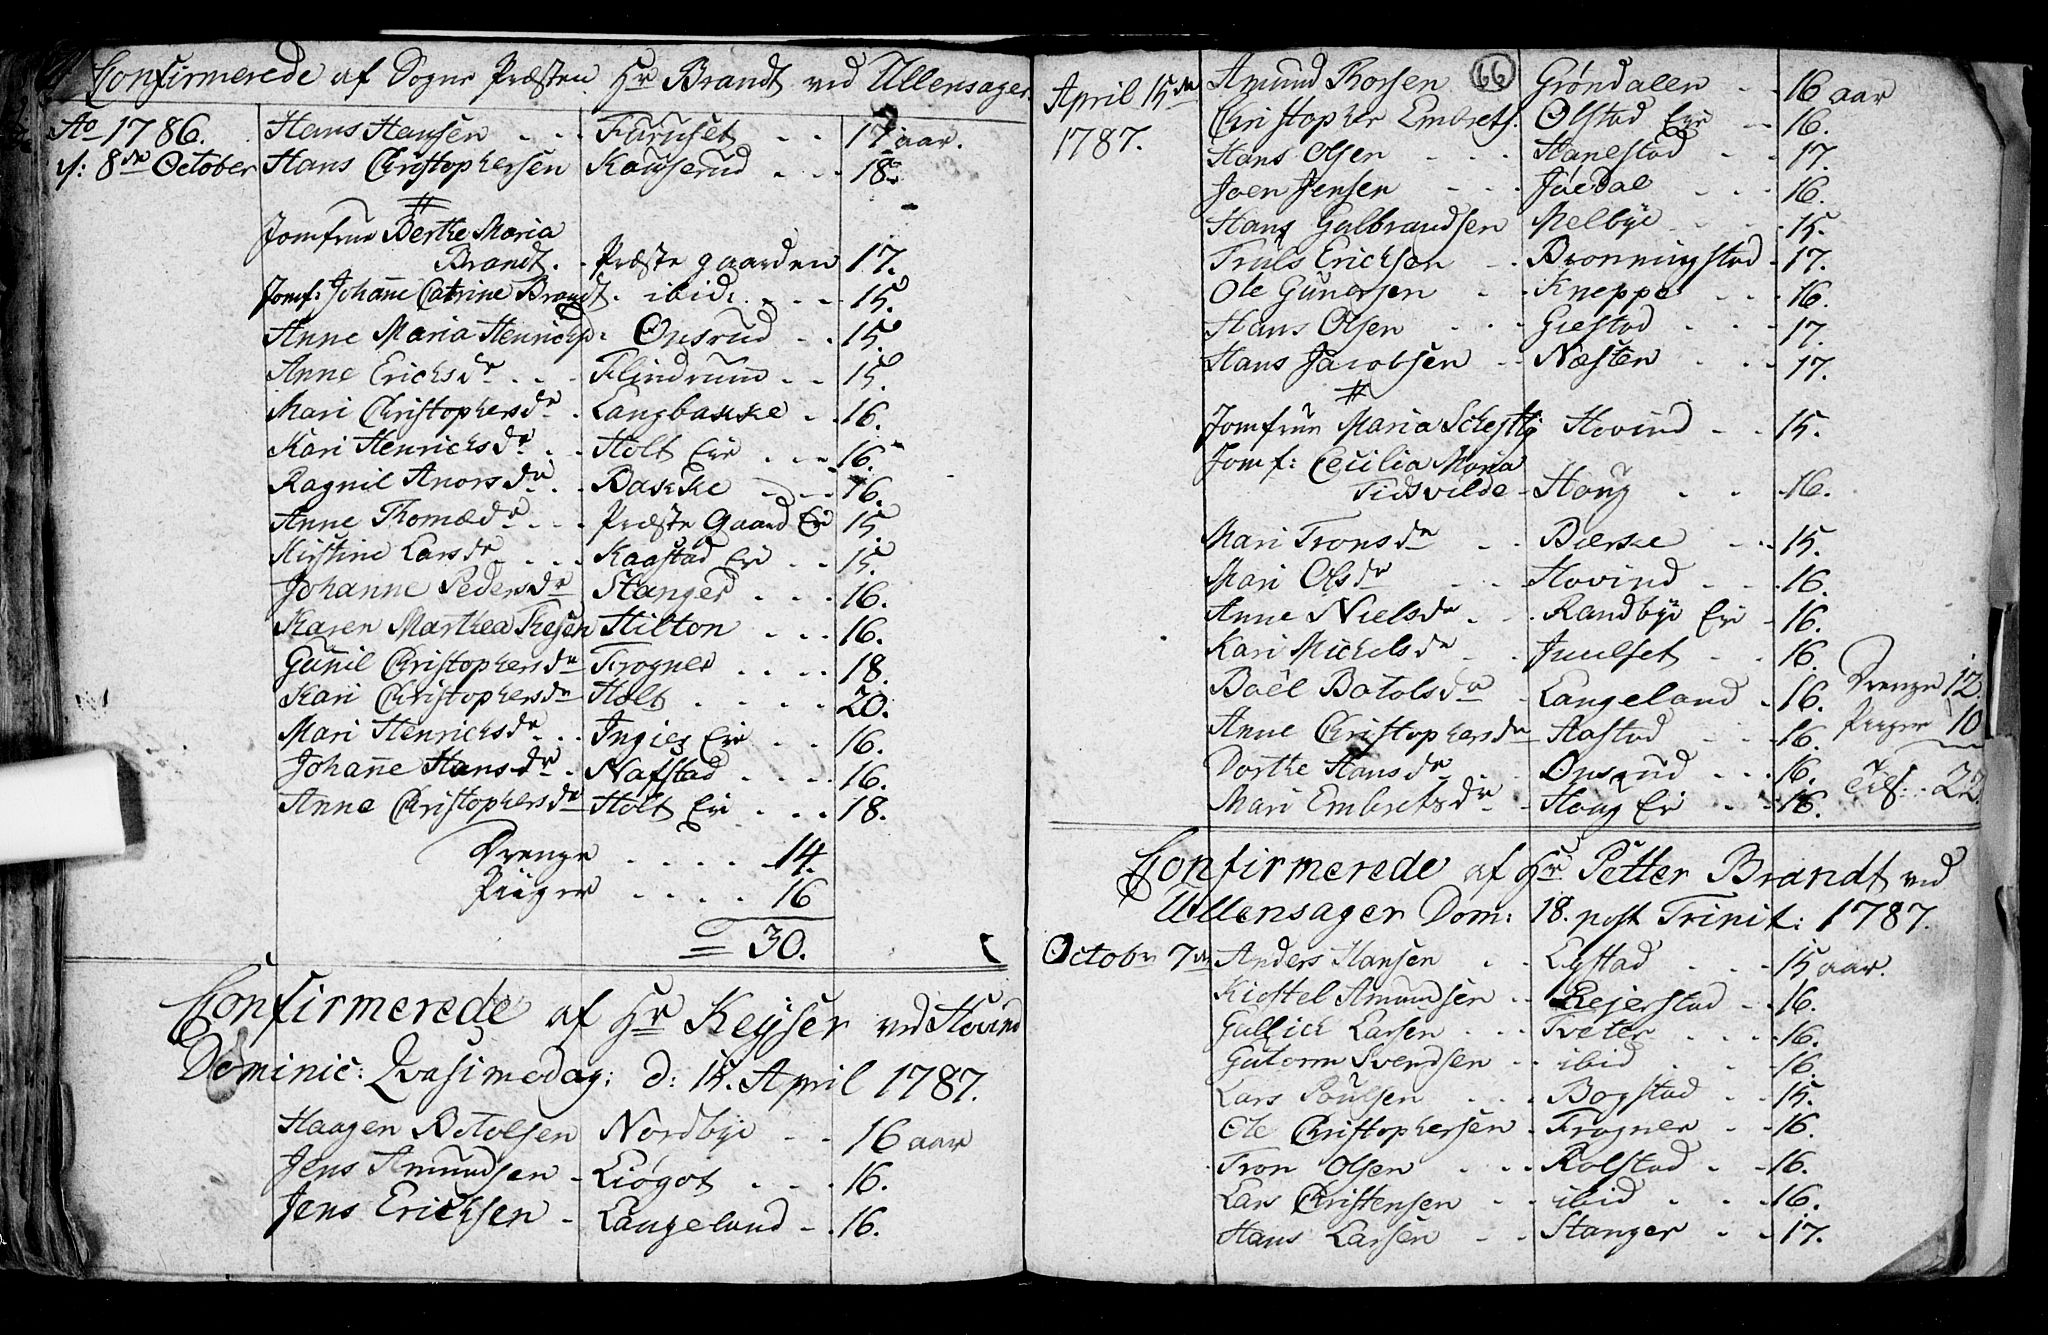 Confirmerede af Sogne Præsten Hr Brandt ved Ullensager.
Ao 1786. Hans Hansen Furuset 17 aar.
d: 8de October Hans Christophersen Kauserud 18.
Jomfrue Berthe Maria
Brandt. Præste gaarden 17.
Jomf: Johañe Catrine Brandt. ibid: 15.
Anne Maria Henrichs Onsrud 15.
Anne Ericksdr Flindrum 15.
Mari Christophersdr Langbakke 16.
Kari Henrichsdr Holt Eie 16.
Ragnil Anorsdr Bakke 16.
Anne Thomædr Præste Gaard Ei 15.
Kirstine Larsdr Kaastad Ei 15.
Johanne Pedersdr Stanger 16.
Karen Marthea Thesen Hilton 16.
Guñil Christophersdr Frogner 18.
Kari Christophersdr Holt 20.
Mari Henrichsdr Ingier Eie 16.
Johañe Hansdr Nafstad 16.
Anne Christophersdr Holt Eie 18.
Drenge 14.
Piiger 16
= 30.
Confirmerede af Hr Keyser ved Hovind
Dominic: Qvasimodog: d: 15. April 1787.
Haagen Betolsen Nordbye 16 aar
Jens Amundsen Liøgot 16.
Jens Ericksen Langeland 16.
66
April 15de Amund Thorsen Grøndalen 16 aar
1787. Christopher Embrets. Olstad Eie 16.
Hans Olsen Hanestad 17.
Joen Jensen Joedal 16.
Hans Gulbrandsen Melbye 15.
Truls Ericksen Bronningstad 17.
Ole Gunersen Kneppe 16.
Hans Olsen Giestad 17.
Hans Jacobsen Næsten 17.
Jomfrue Maria Scheftlj Hovind 15.
Jomf: Cecilia Maria
Tidsvilde Houg 16.
Mari Tronsdr Bierke 15.
Mari Olsdr Hovind 16.
Anne Nielsdr Randbye Ei 16.
Kari Michelsdr Juulset 16.
Boel Botolsdr Langeland 16. Drenge 12.
Anne Christophersdr Aastad 16. Piiger 10
Dorthe Hansdr Onsrud 16.
Mari Embretsdr Houg Ei 16. Tils: 22.
Confirmerede af Hr Petter Brandt ved
Ullensager Dom: 18. post Trinit: 1787.
Octobr 7de Anders Hansen Lystad 15 aar.
Kiøstel Amundsen Rejerstad 16.
Gullick Larsen Tveter 16.
Gutorm Svendsen ibid 16.
Lars Poulsen Bogstad 15.
Ole Christophersen Frogner 16.
Tron Olsen Rolstad 16.
Lars Christensen ibid 16.
Hans Larsen Stanger 17.